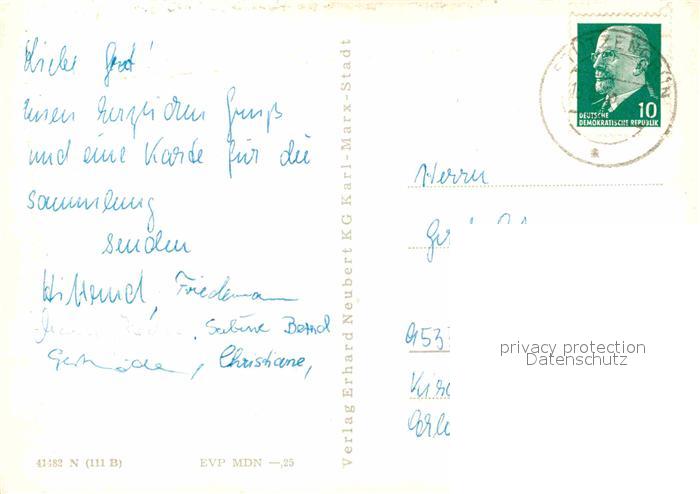 Lieber Gerd!
Einen herzlichen Gruß
und eine Karte für die
Sammlung
senden
Hiltrud, Friedemann
, Sabine Bernd
, Christiane,
41482 N (111 B)
EVP MDN —,25
Verlag Erhard Neubert KG Karl-Marx-Stadt
10
DEUTSCHE
DEMOKRATISCHE REPUBLIK
Herrn
953
privacy protection
Datenschutz